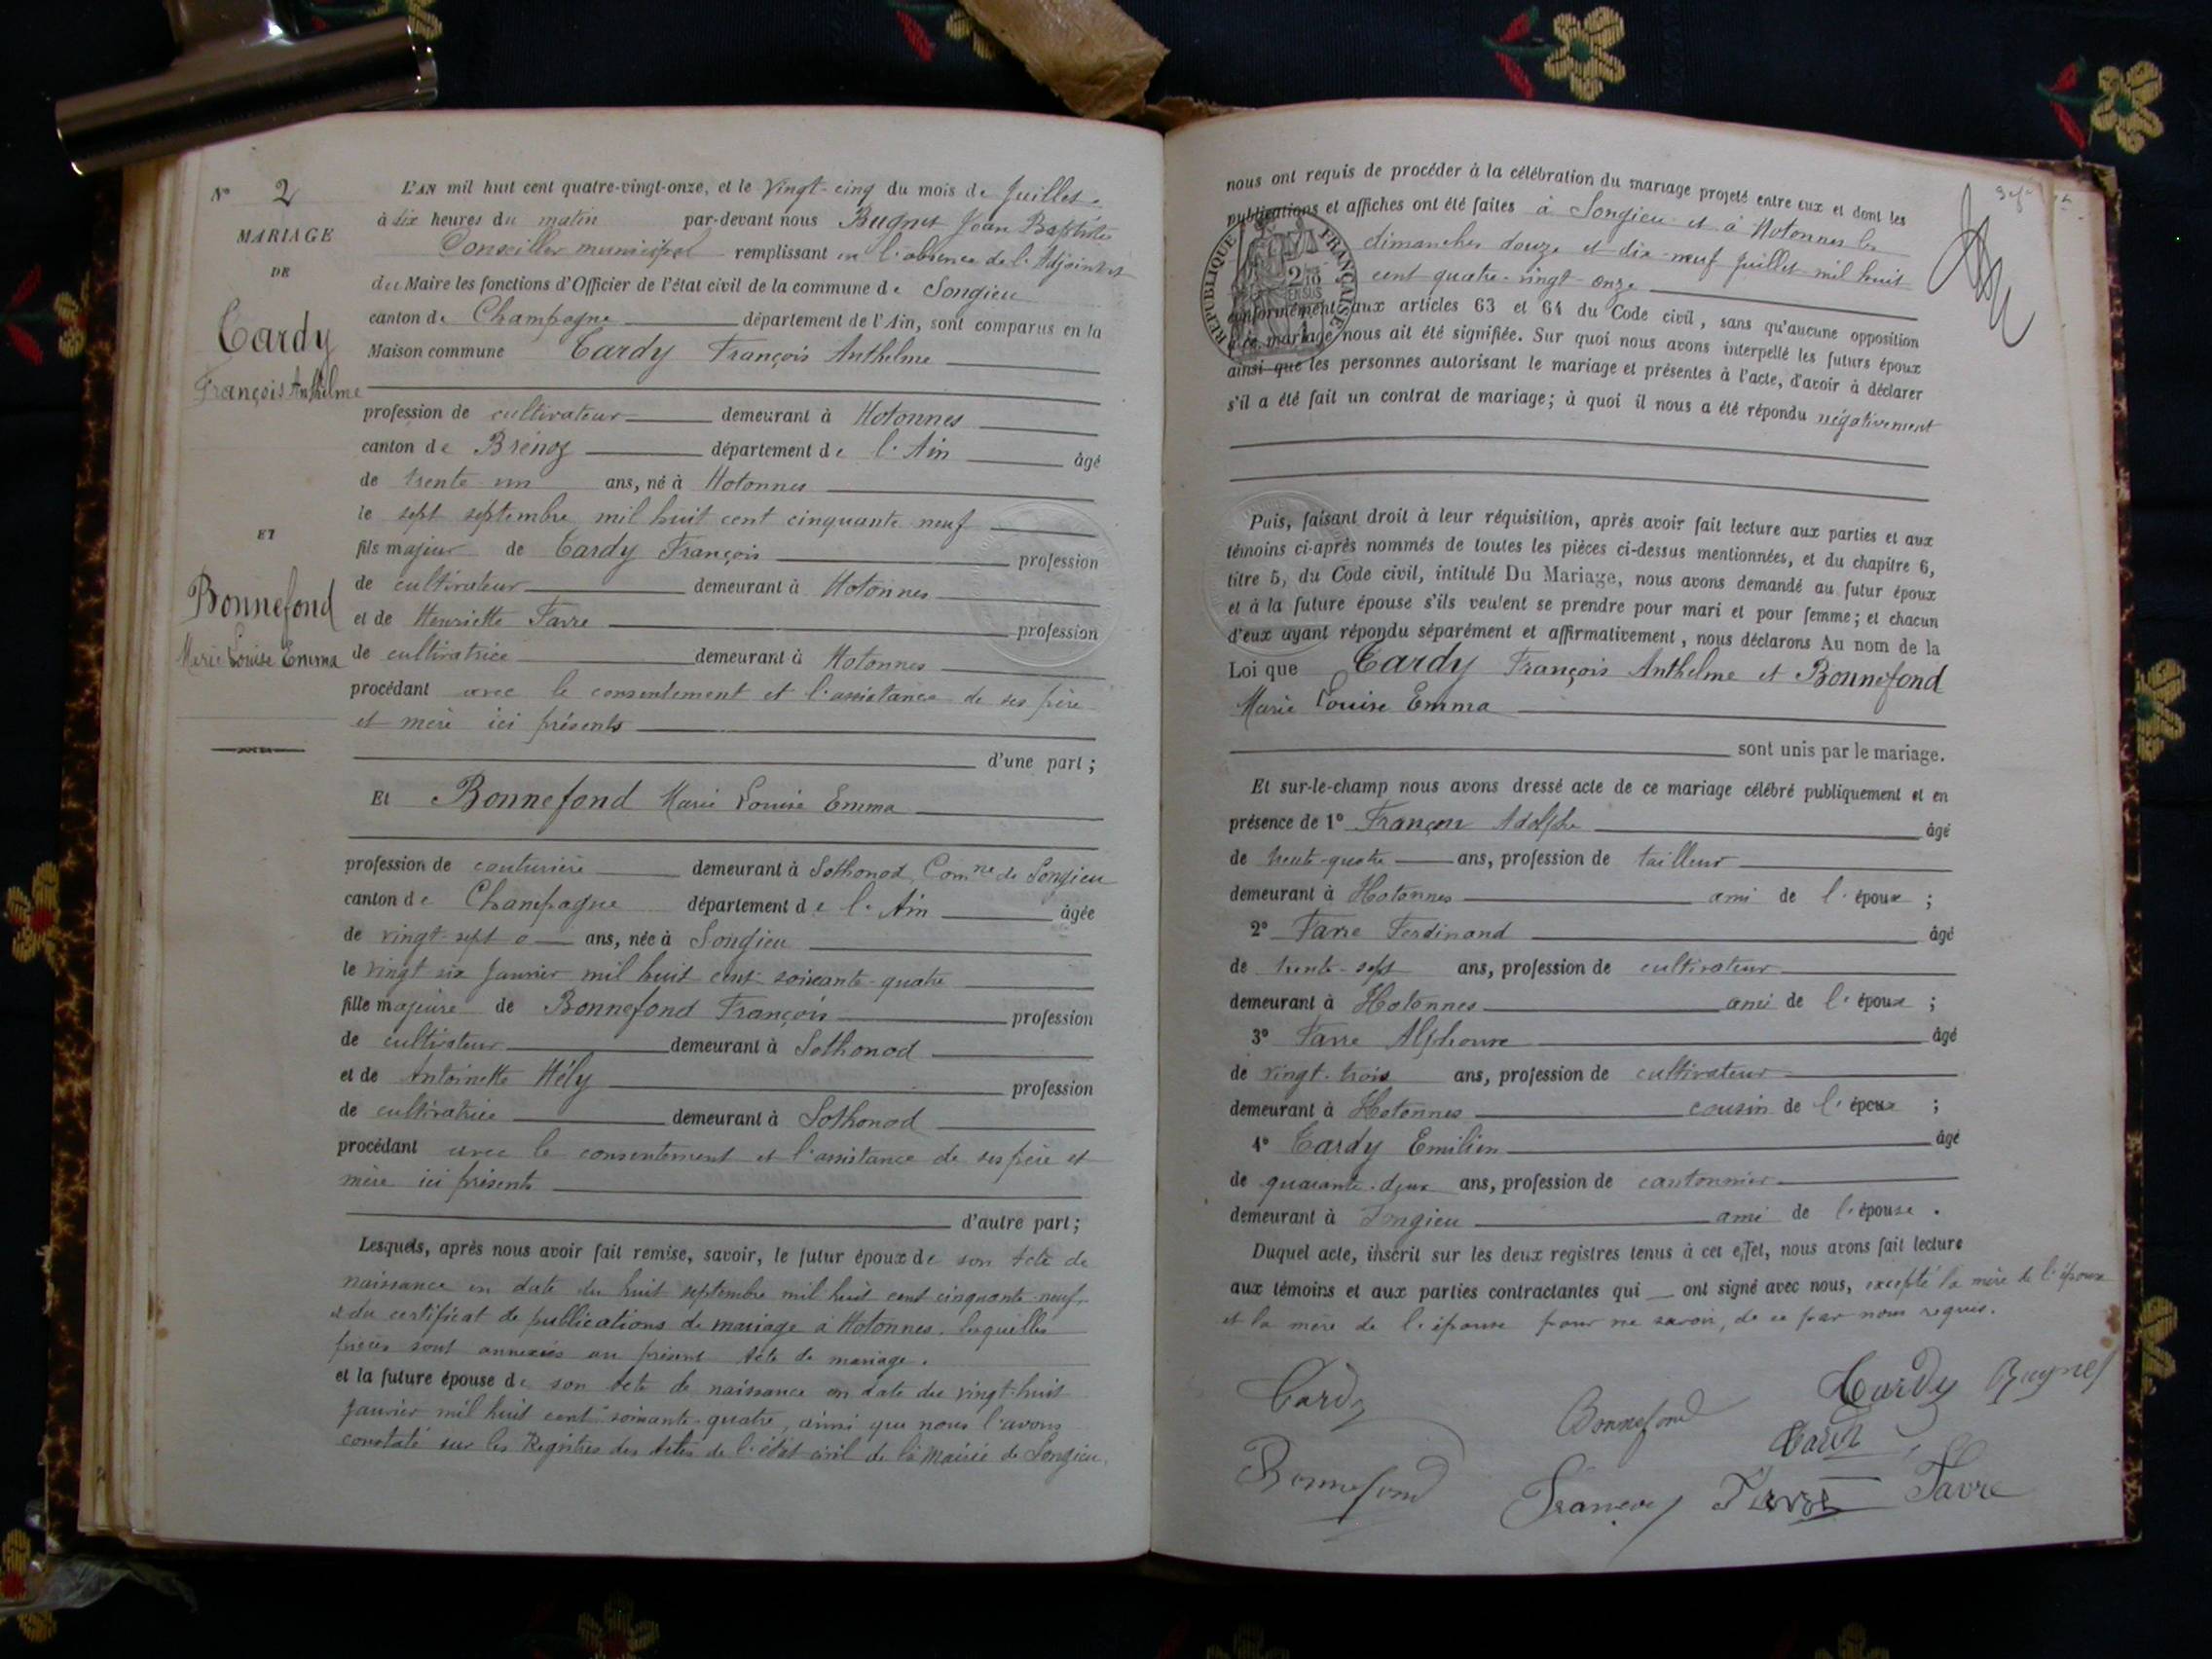 N° 2
MARIAGE
DE
Cardy
François Anthelme
ET
Bonnefond
Marie Louise Emma
L'AN mil huit cent quatre-vingt-onze, et le vingt-cinq du mois de Juillet
à dix heures du matin par-devant nous Bugnet Jean Baptiste
Conseiller municipal remplissant en l'absence de l'Adjoint et
du Maire les fonctions d'Officier de l'état civil de la commune de Songieu
canton de Champagne département de l'Ain, sont comparus en la
Maison commune Cardy François Anthelme
profession de cultivateur demeurant à Hotonnes
canton de Brénoz département de l'Ain âgé
de trente-un ans, né à Hotonnes
le sept septembre mil huit cent cinquante neuf
fils majeur de Cardy François profession
de cultivateur demeurant à Hotonnes
et de Henriette Favre profession
de cultivatrice demeurant à Hotonnes
procédant avec le consentement et l'assistance de ses père
et mère ici présents
d'une part;
Et Bonnefond Marie Louise Emma
profession de couturière demeurant à Sothonod, Comne de Songieu
canton de Champagne département de l'Ain âgée
de vingt-sept ans, née à Songieu
le vingt six Janvier mil huit cent soixante-quatre
fille majeure de Bonnefond François profession
de cultivateur demeurant à Sothonod
et de Antoinette Hély profession
de cultivatrice demeurant à Sothonod
procédant avec le consentement et l'assistance de ses père et
mère ici présents
d'autre part;
Lesquels, après nous avoir fait remise, savoir, le futur époux de son Acte de
naissance en date du huit septembre mil huit cent cinquante-neuf
et du certificat de publications de mariage à Hotonnes. lesquelles
pièces sont annexées au présent Acte de mariage.
et la future épouse de son Acte de naissance en date du vingt-huit
Janvier mil huit cent soixante-quatre, ainsi que nous l'avons
constaté sur les Registres des Actes de l'état civil de la Mairie de Songieu.
nous ont requis de procéder à la célébration du mariage projeté entre eux et dont les
publications et affiches ont été faites à Songieu et à Hotonnes les
dimanches douze et dix-neuf Juillet mil huit
cent quatre-vingt-onze
conformément aux articles 63 et 64 du Code civil, sans qu'aucune opposition
à ce mariage nous ait été signifiée. Sur quoi nous avons interpellé les futurs époux
ainsi que les personnes autorisant le mariage et présentes à l'acte, d'avoir à déclarer
s'il a été fait un contrat de mariage; à quoi il nous a été répondu négativement
REPUBLIQUE FRANÇAISE
Puis, faisant droit à leur réquisition, après avoir fait lecture aux parties et aux
témoins ci-après nommés de toutes les pièces ci-dessus mentionnées, et du chapitre 6,
titre 5, du Code civil, intitulé Du Mariage, nous avons demandé au futur époux
et à la future épouse s'ils veulent se prendre pour mari et pour femme; et chacun
d'eux ayant répondu séparément et affirmativement, nous déclarons Au nom de la
Loi que Cardy François Anthelme et Bonnefond
Marie Louise Emma
sont unis par le mariage.
Et sur-le-champ nous avons dressé acte de ce mariage célébré publiquement et en
présence de 1° Françon Adolphe âgé
de trente-quatre ans, profession de tailleur
demeurant à Hotonnes ami de l'époux;
2° Favre Ferdinand âgé
de trente-sept ans, profession de cultivateur
demeurant à Hotonnes ami de l'époux;
3° Favre Alphonse âgé
de vingt-trois ans, profession de cultivateur
demeurant à Hotonnes cousin de l'époux;
4° Cardy Emilien âgé
de quarante-deux ans, profession de cantonnier
demeurant à Songieu ami de l'épouse.
Duquel acte, inscrit sur les deux registres tenus à cet effet, nous avons fait lecture
aux témoins et aux parties contractantes qui ont signé avec nous, excepté la mère de l'époux
et la mère de l'épouse pour ne savoir, de ce par nous requis.
Cardy Bonnefond Cardy Bugnet
Cardy
Bonnefond Françon Favre Favre